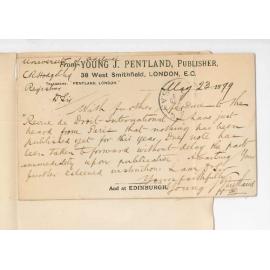 University of
From YOUNG J. PENTLAND, PUBLISHER,
38 West Smithfield, LONDON, E.C.
Registrar
TELEGRAMS, "PENTLAND, LONDON."
May 23 1899
D Sir
With further reference to the
"Revue de Droit International" I have just
heard from Paris that nothing has been
published yet for this year. Due note has
been taken to forward without delay the parts
immediately upon publication. Awaiting your
further esteemed instructions I am Sir
Yours faithfully
Young J Pentland
And at EDINBURGH.